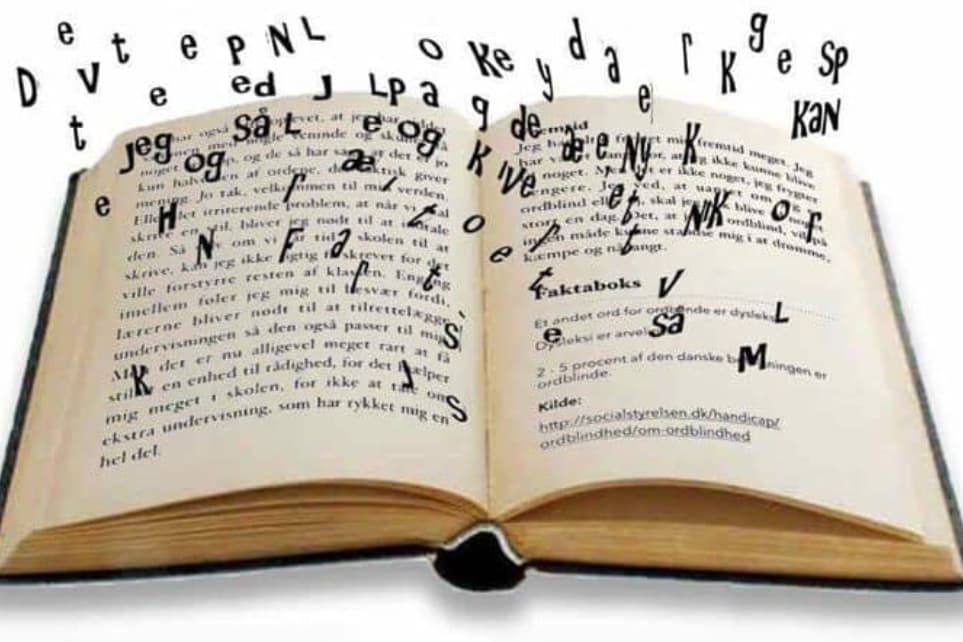 e t e P N L o Ke y d a r K g e SP
D V e ed J LP a g de e KaN
t Jeg og SåL e og K
har også oplevet, at jeg har
noget
kun halvdelen af ordene, det giver
mening. Jo tak, velkommen til min verden.
Eller det irriterende problem, at når vi skal
skrive en stil, bliver jeg nødt til at
den. Så om vi får tid i skolen til at
skrive, kan jeg ikke rigtig få skrevet for det
ville forstyrre resten af klassen. Engang
imellem føler jeg mig til besvær fordi,
lærerne bliver nødt til at tilrettelægge
undervisningen så den også passer til mig.
Men det er nu alligevel meget rart at få
stillet en enhed til rådighed, for det hjælper
mig meget i skolen, for ikke at tale om
ekstra undervisning, som har rykket mig en
hel del.
Fremtid
Jeg har min fremtid meget. Jeg
har for, at jeg ikke kunne blive
noget. Men er ikke noget, jeg frygter
længere. Jeg ved, at uanset om jeg er
ordblind eller skal jeg blive noget
stort en dag. Det, at ordblind, vil på
ingen måde kunne stamme mig i at drømme,
kæmpe og nå langt.
Faktaboks
Et andet ord for ordblinde er dysleksi
Dysleksi er arveligt
2 - 5 procent af den danske befolkningen er
ordblinde.
Kilde:
http://socialstyrelsen.dk/handicap/
ordblindhed/om-ordblindhed